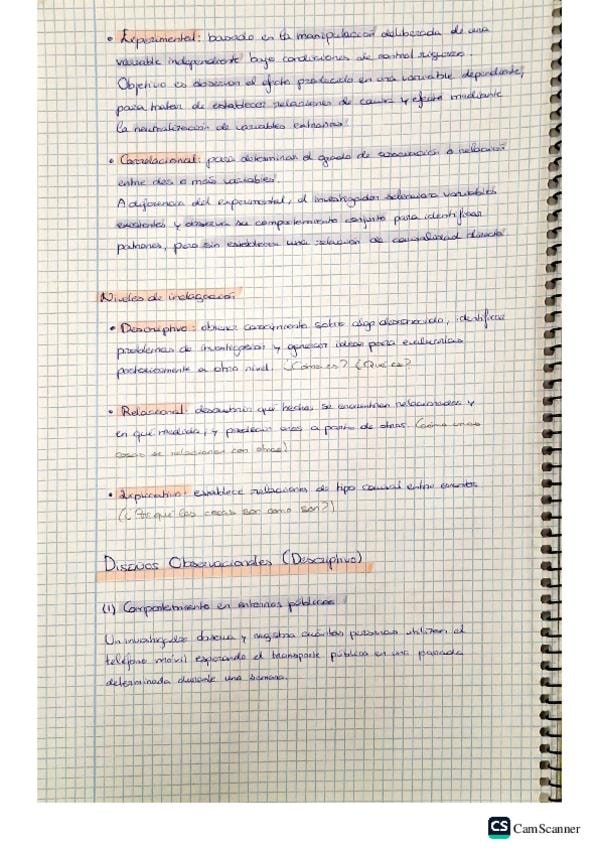 • Experimental: basado en la manipulación deliberada de una
variable independiente bajo condiciones de control riguroso.
Objetivo es observar el efecto producido en una variable dependiente,
para tratar de establecer relaciones de causa y efecto mediante
la neutralización de variables extrañas.
• Correlacional: para determinar el grado de asociación o relación
entre dos o más variables.
A diferencia del experimental, el investigador selecciona variables
existentes y observa su comportamiento conjunto para identificar
patrones, pero sin establecer una relación de causalidad directa.
Niveles de indagación
• Descriptivo: obtener conocimiento sobre algo desconocido, identificar
problemas de investigación y generar ideas para evaluarlas
posteriormente a otro nivel. ¿Cómo es? ¿Qué es?
• Relacional: descubrir qué hechos se encuentran relacionados y
en qué medida, y predecir unos a partir de otros. (cómo unas
cosas se relacionan con otras)
• Explicativo: establece relaciones de tipo causal entre eventos
(¿Por qué las cosas son como son?)
Diseños Observacionales (Descriptivo)
(1) Comportamiento en entornos públicos
Un investigador observa y registra cuántas personas utilizan el
teléfono móvil esperando el transporte público en una parada
determinada durante una semana.
CS CamScanner